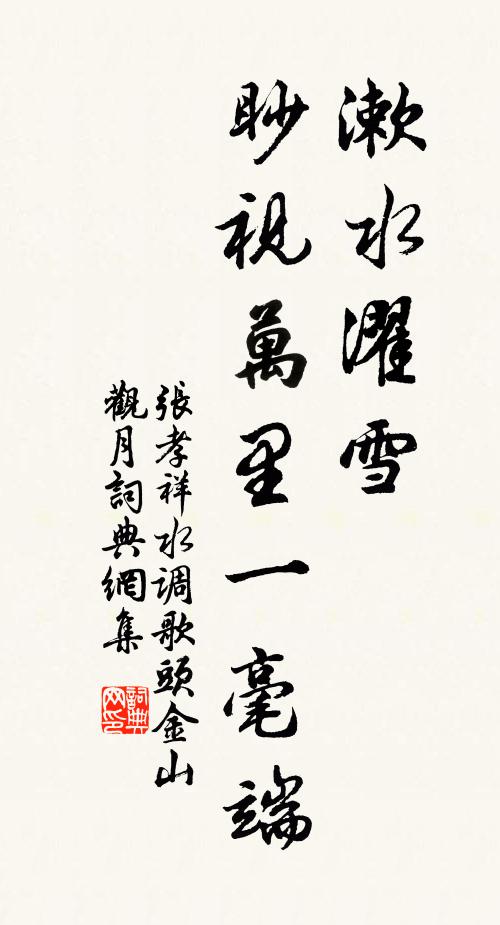 漱水濯雪
眇視萬里一毫端
張孝祥水调歌頭金山
觀月詞典網集
詞典网印